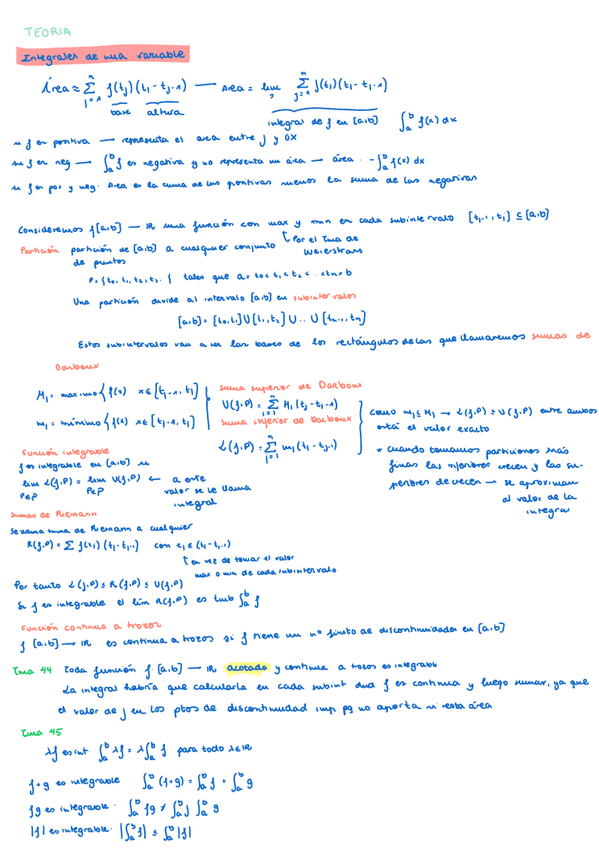 TEORIA
Integrales de una variable
Área ≈ Σ_{j=1}^{n} f(tj)(tj - tj-1) — Area = lim Σ_{j=1}^{n} f(tj)(tj - tj-1)
base altura
integral de f en [a,b] ∫_a^b f(x) dx
si f en positiva — representa el area entre f y OX
si f en neg — ∫_a^b f es negativa y no representa un área — área: -∫_a^b f(x) dx
si f en pos y neg. Area es la suma de las positivas menos la suma de las negativas
Consideremos f[a,b] → IR una función con max y min en cada subintervalo [tj-1, tj] ⊆ [a,b]
Por el Tma de Weierstrass
Partición partición de [a,b] a cualquier conjunto
de puntos
P = {to, t1, t2, t3..} tales que a = to < t1 < t2 < .. < tn = b
Una partición divide al intervalo [a,b] en subintervalos
[a,b] = [to,t1] U [t1,t2] U .. U [tn-1, tn]
Estos subintervalos van a ser las bases de los rectángulos de las que llamaremos sumas de
Darboux
Mj = maximo {f(x) x∈[tj-1, tj]
mj = mínimo {f(x) x∈[tj-1, tj]
suma superior de Darboux
U(f,P) = Σ_{j=1}^{n} Mj (tj - tj-1)
suma inferior de Darboux
L(f,P) = Σ_{j=1}^{n} mj (tj - tj-1)
como mj ≤ Mj → L(f,P) ≤ U(f,P) entre ambos
está el valor exacto
* cuando tomamos particiones más
finas las inferiores crecen y las su-
periores decrecen — se aproximan
al valor de la
integral
Función integrable
f es integrable en [a,b] si
lim L(f,P) = lim U(f,P) ← a este
P∈P P∈P valor se le llama
integral
Sumas de Riemann
Se llama suma de Riemann a cualquier
R(f,P) = Σ f(cj)(tj - tj-1) con cj ∈ (tj - tj-1)
en vez de tomar el valor
max o min de cada subintervalo
Por tanto L(f,P) ≤ R(f,P) ≤ U(f,P)
Si f es integrable el lim R(f,P) es tmb ∫_a^b f
Función continua a trozos
f [a,b] → IR es continua a trozos si f tiene un nº finito de discontinuidades en [a,b]
Tma 44 Toda función f [a,b] → IR acotada y continua a trozos es integrable
La integral habría que calcularla en cada subint dnd f es continua y luego sumar, ya que
el valor de f en los ptos de discontinuidad imp pq no aporta ni resta área
Tma 45
λf es int ∫_a^b λf = λ∫_a^b f para todo λ∈IR
f+g es integrable ∫_a^b (f+g) = ∫_a^b f + ∫_a^b g
fg es integrable. ∫_a^b fg ≠ ∫_a^b f ∫_a^b g
|f| es integrable. |∫_a^b f| ≤ ∫_a^b |f|